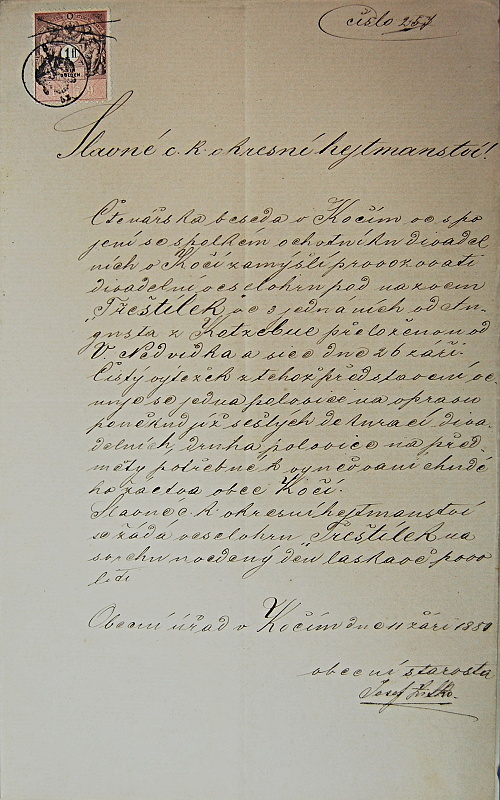 číslo 257
Slavné c. k. okresní hejtmanství!
Čtenářská beseda v Kočím ve spo
jení se spolkem ochotníků divadel
ních v Kočí zamýšlí provozovati
divadelní veselohru pod názvem
Třeštílek ve 3 jednáních od Au-
gusta z Kotzebue přeloženou od
V. Nedvídka a sice dne 26 září.
Čistý výtěžek z téhož představení vě
nuje se jedna polovice na opravu
poněkud již sešlých dekorací diva-
delních, druhá polovice na před-
měty potřebné k vyučování chudé
ho žactva obce Kočí.
Slavné c. k. okresní hejtmanství
se žádá veselohru Třeštílek na
svrchu uvedený den laskavě povo
liti
Obecní úřad v Kočím dne 11 září 1880
obecní starosta
Josef